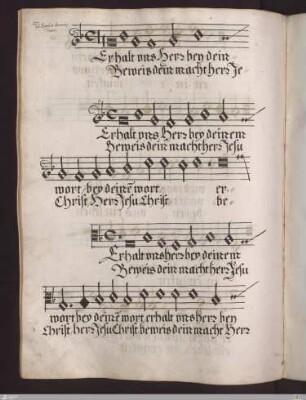 Erhalt vns Herr bey dein
Beweis dein macht herr Je
Erhalt vns Herr bey deinem
Beweis dein macht herr Jesu
wort bey deinē wort er-
Christ Herr Jesu Christ be-
Erhalt vns herr bey deinem
Beweis dein macht herr Jesu
wort bey deinē wort erhalt vns herr bey
Christ herr Jesu Christ beweis dein macht Herr